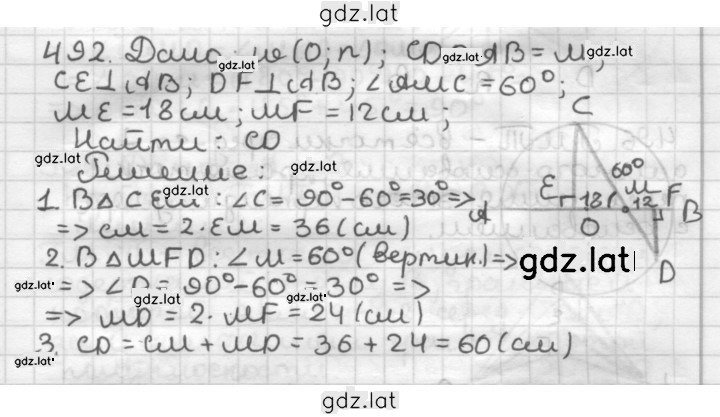 gdz.lat
492. Дано: w (O; r); CD ∩ AB = M;
CE⊥AB; DF⊥AB; ∠AMC = 60°;
ME = 18 см; MF = 12 см;
Найти: CD
Решение:
1. В △ CEM: ∠C = 90° - 60° = 30° =>
=> CM = 2 · EM = 36 (см)
2. В △ MFD: ∠M = 60° (вертик.) =>
=> ∠D = 90° - 60° = 30° =>
=> MD = 2 · MF = 24 (см)
3. CD = CM + MD = 36 + 24 = 60 (см)
C
60°
E 18 M 12 F
A O B
D
gdz.lat
gdz.lat
gdz.lat
gdz.lat
gdz.lat
gdz.lat
gdz.lat
gdz.lat
gdz.lat
gdz.lat
gdz.lat